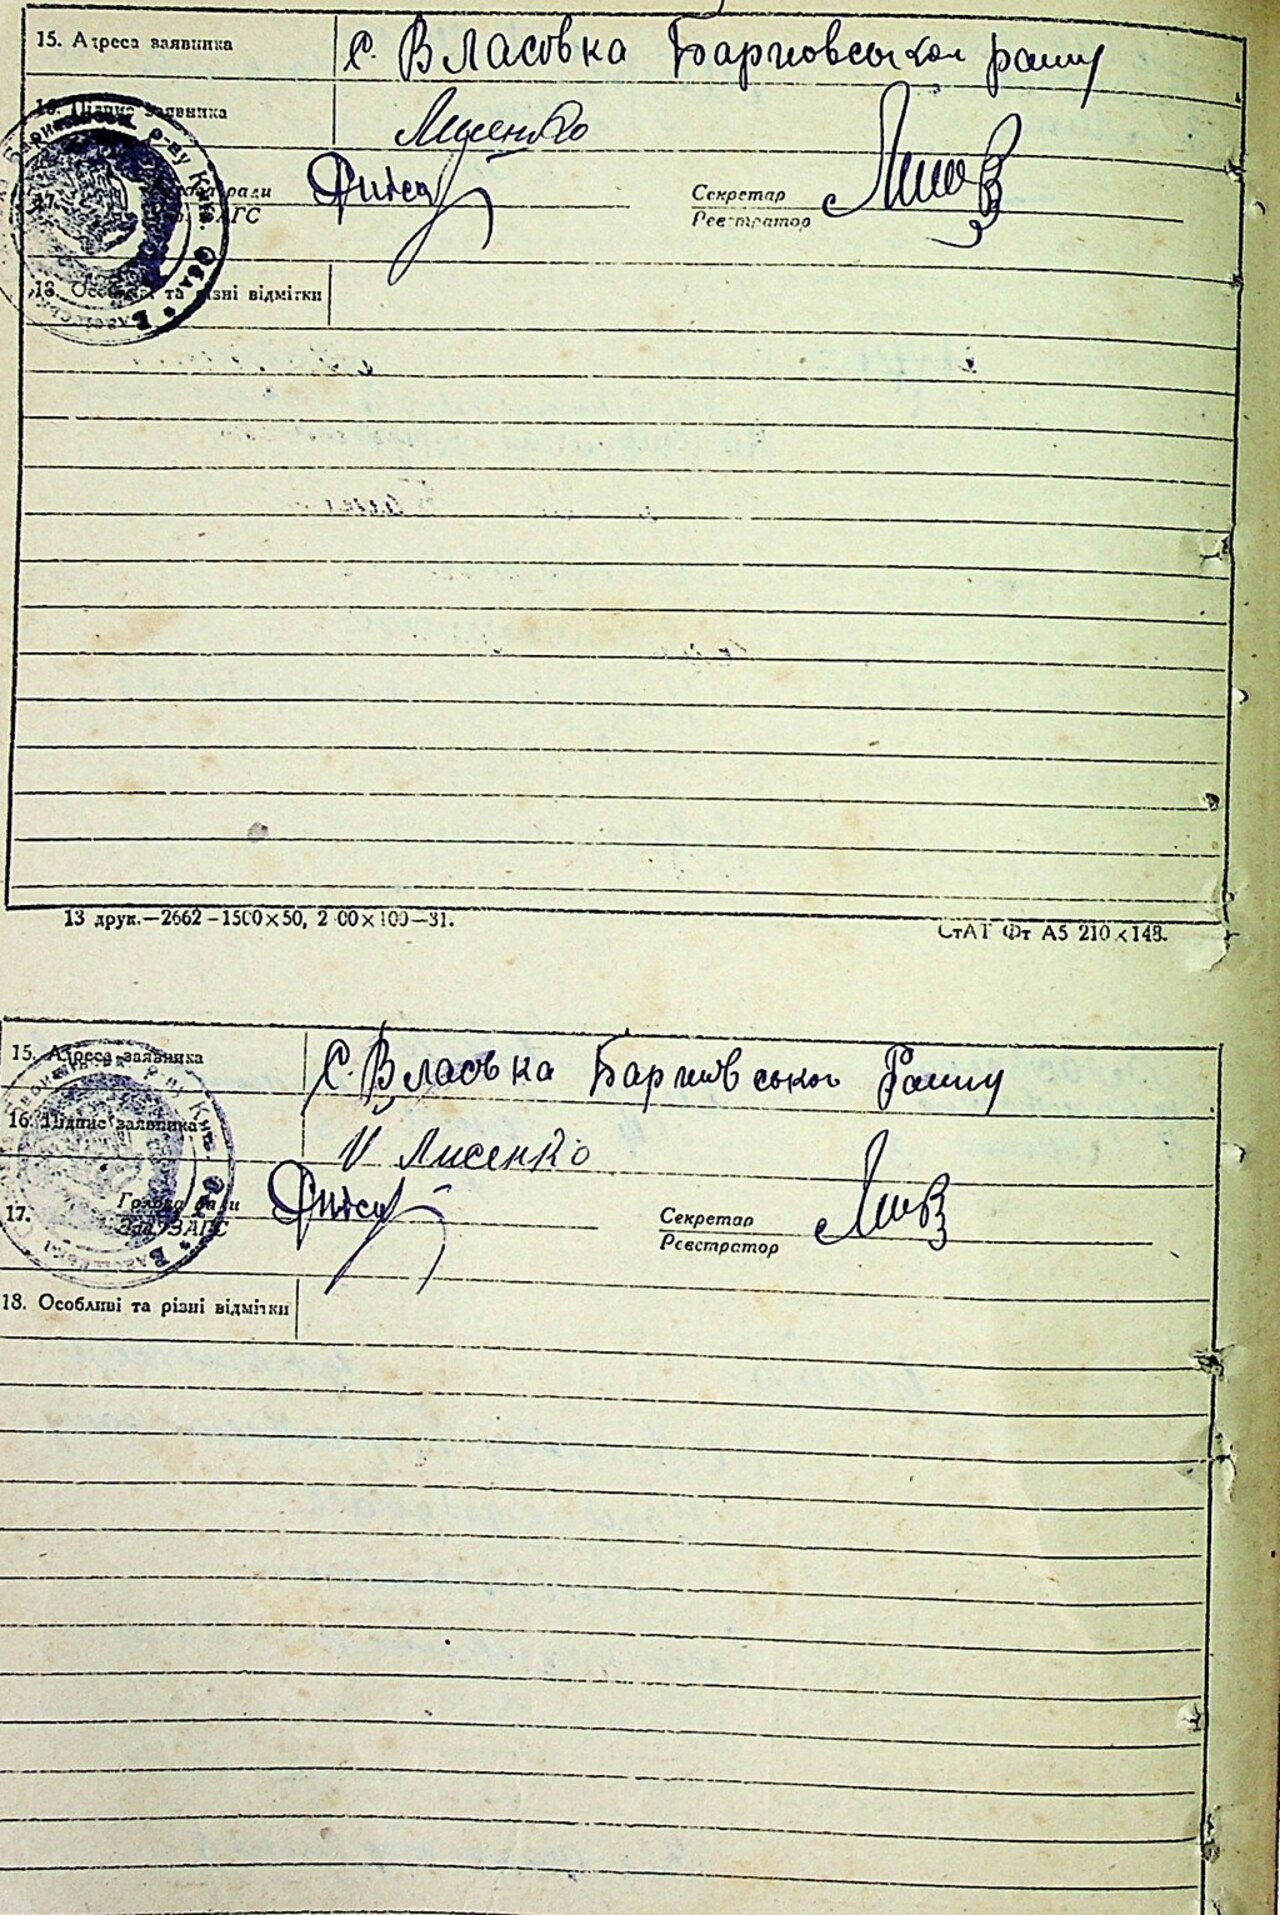 15. Адреса заявника с. Власовка Баришовського району
16. Підпис заявника Лисенко
17. Голова ради Секретар
Зав. ЗАГС Реєстратор
18. Особливі та різні відмітки
13 друк.—2662—1500×50, 2 00×100—31. СтАТ Фт А5 210×148.
15. Адреса заявника с. Власовка Баришовського району
16. Підпис заявника Лисенко
17. Голова ради Секретар
Зав. ЗАГС Реєстратор
18. Особливі та різні відмітки